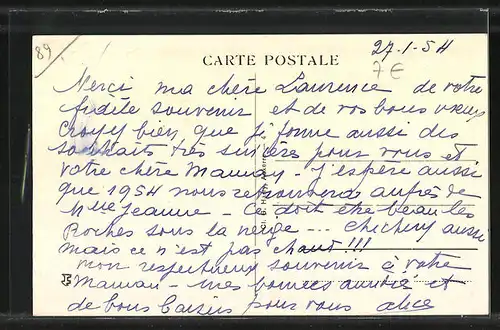 89
27-1-54
CARTE POSTALE
7€
Merci ma chère Laurence de votre
fidèle souvenir et de vos bons vœux
Croyez bien que je forme aussi des
souhaits très sincères pour vous et
votre chère Maman - J'espère aussi
que 1954 nous retrouvera auprès de
Mlle Jeanne - Ce doit être beau les
Roches sous la neige --- Chichery aussi
mais ce n'est pas chaud !!!
mon respectueux souvenir à votre
Maman - mes bonnes amitiés et
de bons baisers pour vous alice